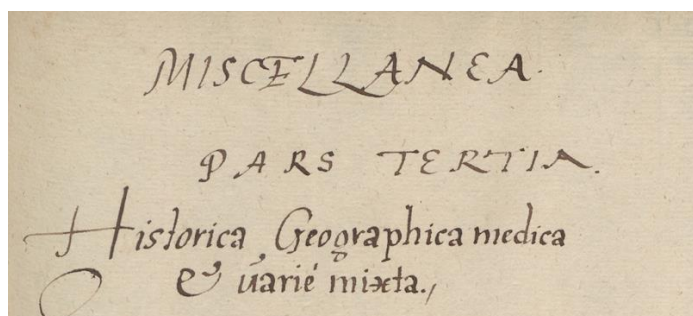 MISCELLANEA.
PARS TERTIA.
Historica, Geographica medica
& varié mixta.,